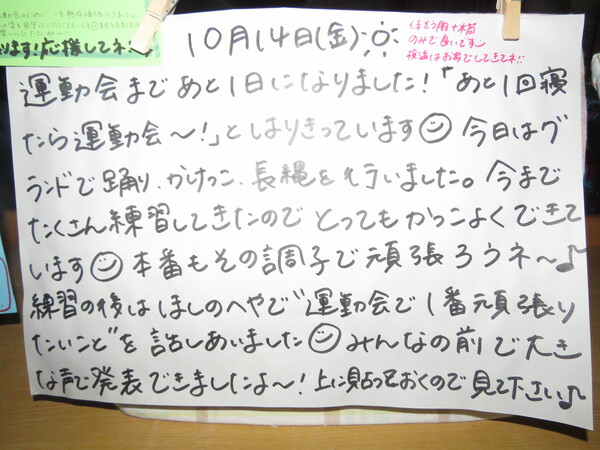 ります!応援してネ!
10月14日(金)
のみで良いです
運動会まであと1日になりました!"あと1回寝
たら運動会〜!"とはりきっています 今日はグ
ランドで踊り、かけっこ、長縄を行いました。今まで
たくさん練習してきたのでとってもかっこよくできて
います 本番もその調子で頑張ろうネ〜♪
練習の後はほしのへやで"運動会で1番頑張り
たいこと"を話しあいました みんなの前で大き
な声で発表できましたよ〜!上に貼っておくので見て下さい♪